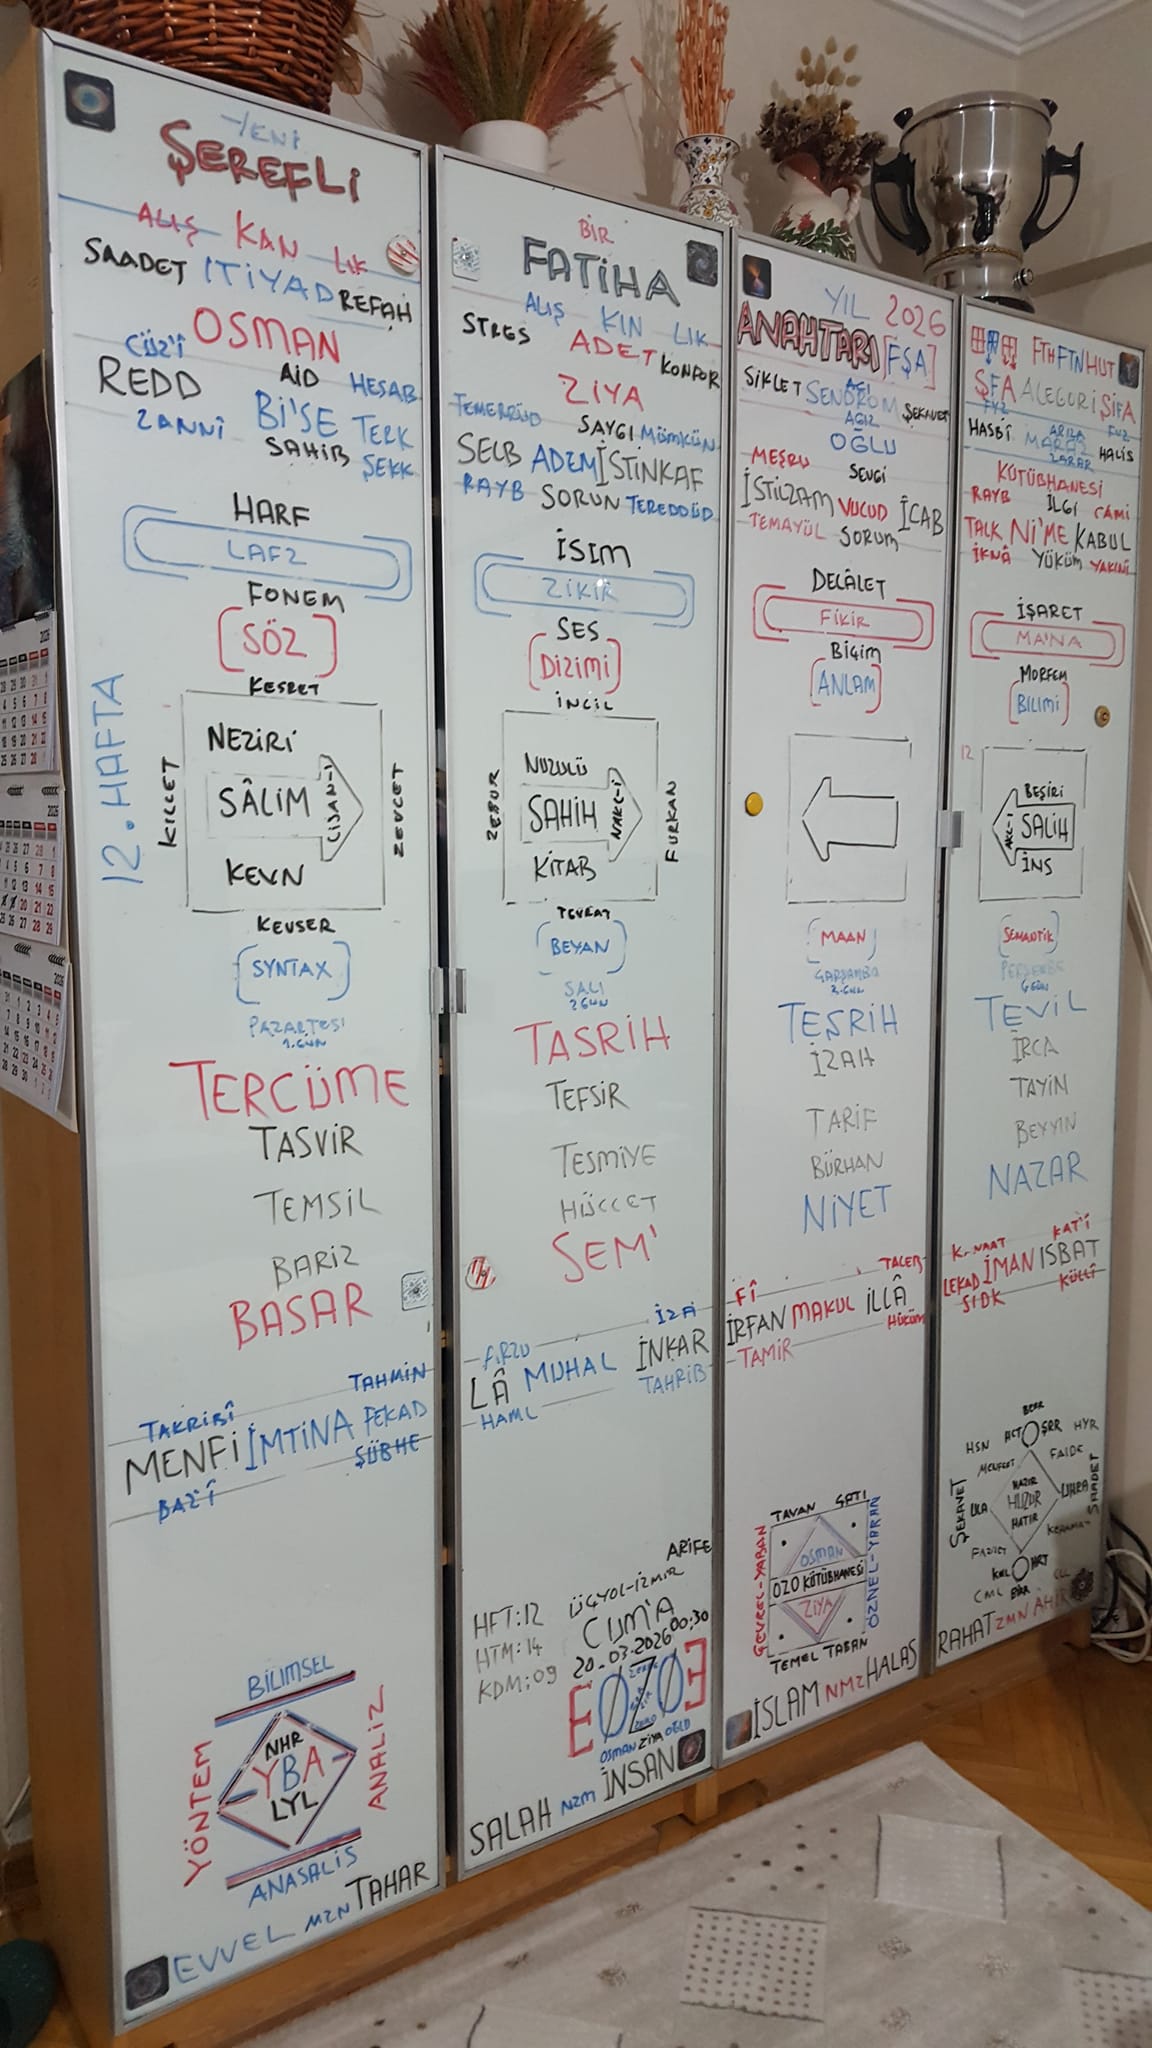 YENİ
ŞEREFLİ
ALIŞ KAN LIK
SAADET ITIYAD REFAH
OSMAN
CÜZ'Î AİD HESAB
REDD Bİ'SE TERK
ZANNÎ SAHİB ŞEKK
HARF
LAFZ
FONEM
[SÖZ]
KESRET
12. HAFTA
KILLET
NEZİRİ
SÂLİM
KEVN
ZEVCET
KEVSER
[SYNTAX]
PAZARTESİ
1. GÜN
TERCÜME
TASVİR
TEMSİL
BARİZ
BASAR
TAKRİBÎ TAHMİN
MENFİ İMTİNA FEKAD
BAZ'Î ŞÜBHE
BİLİMSEL
YÖNTEM
NHR
YBA
LYL
ANALİZ
ANASALİS
EVVEL MZN TAHAR
BİR
FATİHA
ALIŞ KIN LIK
STRES ADET KONFOR
ZİYA
TEMERRÜD SAYGI MÜMKÜN
SELB ADEM İSTİNKAF
RAYB SORUN TEREDDÜD
İSİM
ZİKİR
SES
[DİZİMİ]
İNCİL
ZEBUR
NUZULÜ
SAHİH
NAKL-İ
KİTAB
FURKAN
TEVRAT
[BEYAN]
SALI
2 GÜN
TASRİH
TEFSİR
TESMİYE
HÜCCET
SEM'
ARZU İZA
LÂ MUHAL İNKAR
HAML TAHRİB
ARİFE
ÜÇYOL-İZMİR
HFT:12 CUM'A
HTM:14 20-03-2026 00:30
KDM:09
EOZO3
OSMAN ZİYA OĞLU
SALAH NZM İNSAN
YIL 2026
ANAHTARI [FŞA]
SIKLET SENDROM ŞEKAVET
AĞIZ
OĞLU
MEŞRU SEVGİ
İSTİLZAM VUCUD İCAB
TEMAYÜL SORUM
DELÂLET
FİKİR
BİÇİM
[ANLAM]
[MAAN]
ÇARŞAMBA
3. GÜN
TEŞRİH
İZAH
TARİF
BÜRHAN
NİYET
Fİ TALEB
İRFAN MAKUL İLLÂ
TAMİR HÜKÜM
TAVAN ÇATI
ÇEVREL-YABAN
OSMAN
OZO KÜTÜBHANESİ
ZİYA
ÖZNEL-YARAN
TEMEL TABAN
İSLAM NMZ HALAS
FTH FTN HUT
ŞFA ALEGORİ ŞİFA
HASBÎ ARIZA HALİS
MARAZ
ZARAR
KÜTÜBHANESİ
RAYB İLGİ CÂMİ
TALK Nİ'ME KABUL
İKNÂ YÜKÜM YAKINÎ
İŞARET
MA'NA
MORFEM
[BİLİMİ]
12
BEŞİRİ
SALİH
İNS
[SEMANTİK]
PERŞEMBE
4 GÜN
TEVİL
İRCA
TAYİN
BEYYİN
NAZAR
KANAAT KAT'İ
LEKAD İMAN ISBAT
SIDK KÜLLÎ
HSN HCT ŞRR HYR
MENFEET FAİDE
ŞEKAVET
ULA
HAZIR
HUZUR
HATIR
UHRA
SAADET
FAZİLET
CML
RAHAT ZMN AHİR